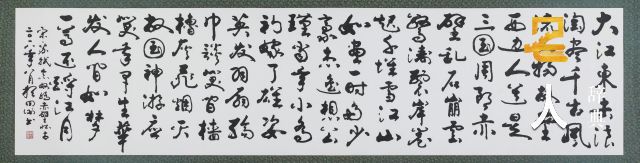 大江東去浪
淘盡千古風
流物
西邊人道是
三国周郎赤
壁乱石崩雲
驚濤裂岸卷
起千堆雪江山
如畫一時多少
豪杰遥想公
瑾當年小喬
初嫁了雄姿
英发羽扇綸
巾談笑間檣
櫓灰飛烟灭
故国神游
笑早生華
发人間如梦
一尊还酹江月
宋蘇軾念奴嬌赤壁怀古
二〇一八年八月
人
辞典